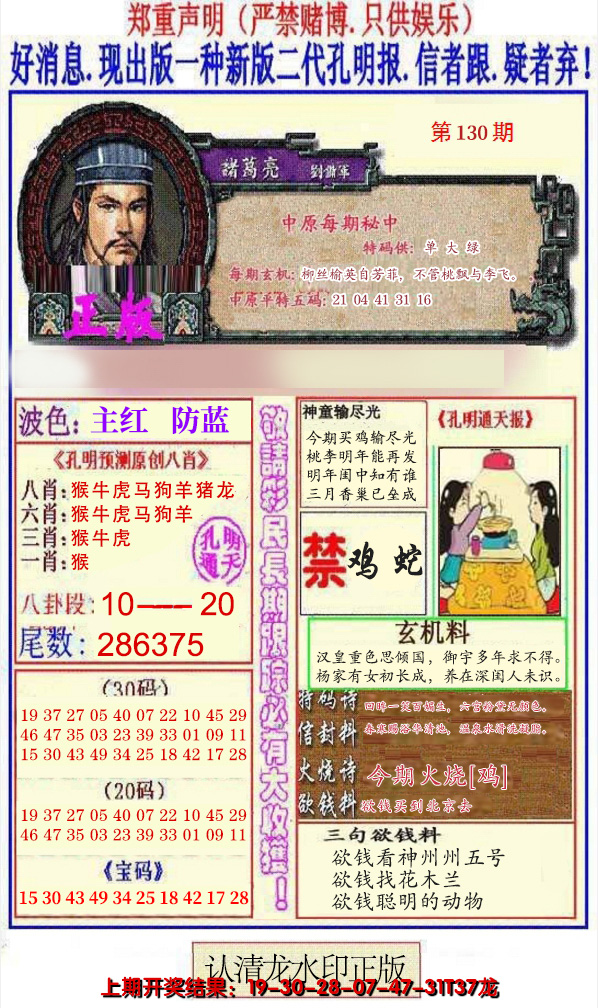 郑重声明（严禁赌博.只供娱乐）
好消息.现出版一种新版二代孔明报.信者跟.疑者弃！
第130期
諸葛亮 劉備軍
中原每期秘中
特码供：单 大 绿
每期玄机：柳丝榆荚自芳菲，不管桃飘与李飞。
中原平特五码：21 04 41 31 16
正版
波色：主红 防蓝
《孔明预测原创八肖》
八肖：猴牛虎马狗羊猪龙
六肖：猴牛虎马狗羊
三肖：猴牛虎
一肖：猴
孔明
通天
八卦段：10——20
尾数：286375
（30码）
19 37 27 05 40 07 22 10 45 29
46 47 35 03 23 39 33 01 09 11
15 30 43 49 34 25 18 42 17 28
（20码）
19 37 27 05 40 07 22 10 45 29
46 47 35 03 23 39 33 01 09 11
《宝码》
15 30 43 49 34 25 18 42 17 28
敬請彩民長期跟踪必有大收獲！
神童输尽光
今期买鸡输尽光
桃李明年能再发
明年闺中知有谁
三月香巢已垒成
《孔明通天报》
禁 鸡 蛇
玄机料
汉皇重色思倾国，御宇多年求不得。
杨家有女初长成，养在深闺人未识。
特码诗 回眸一笑百媚生，六宫粉黛无颜色。
信封料 春寒赐浴华清池，温泉水滑洗凝脂。
火烧诗 今期火烧[鸡]
欲钱料 欲钱买到北京去
三句欲钱料
欲钱看神州州五号
欲钱找花木兰
欲钱聪明的动物
认清龙水印正版
上期开奖结果：19-30-28-07-47-31T37龙